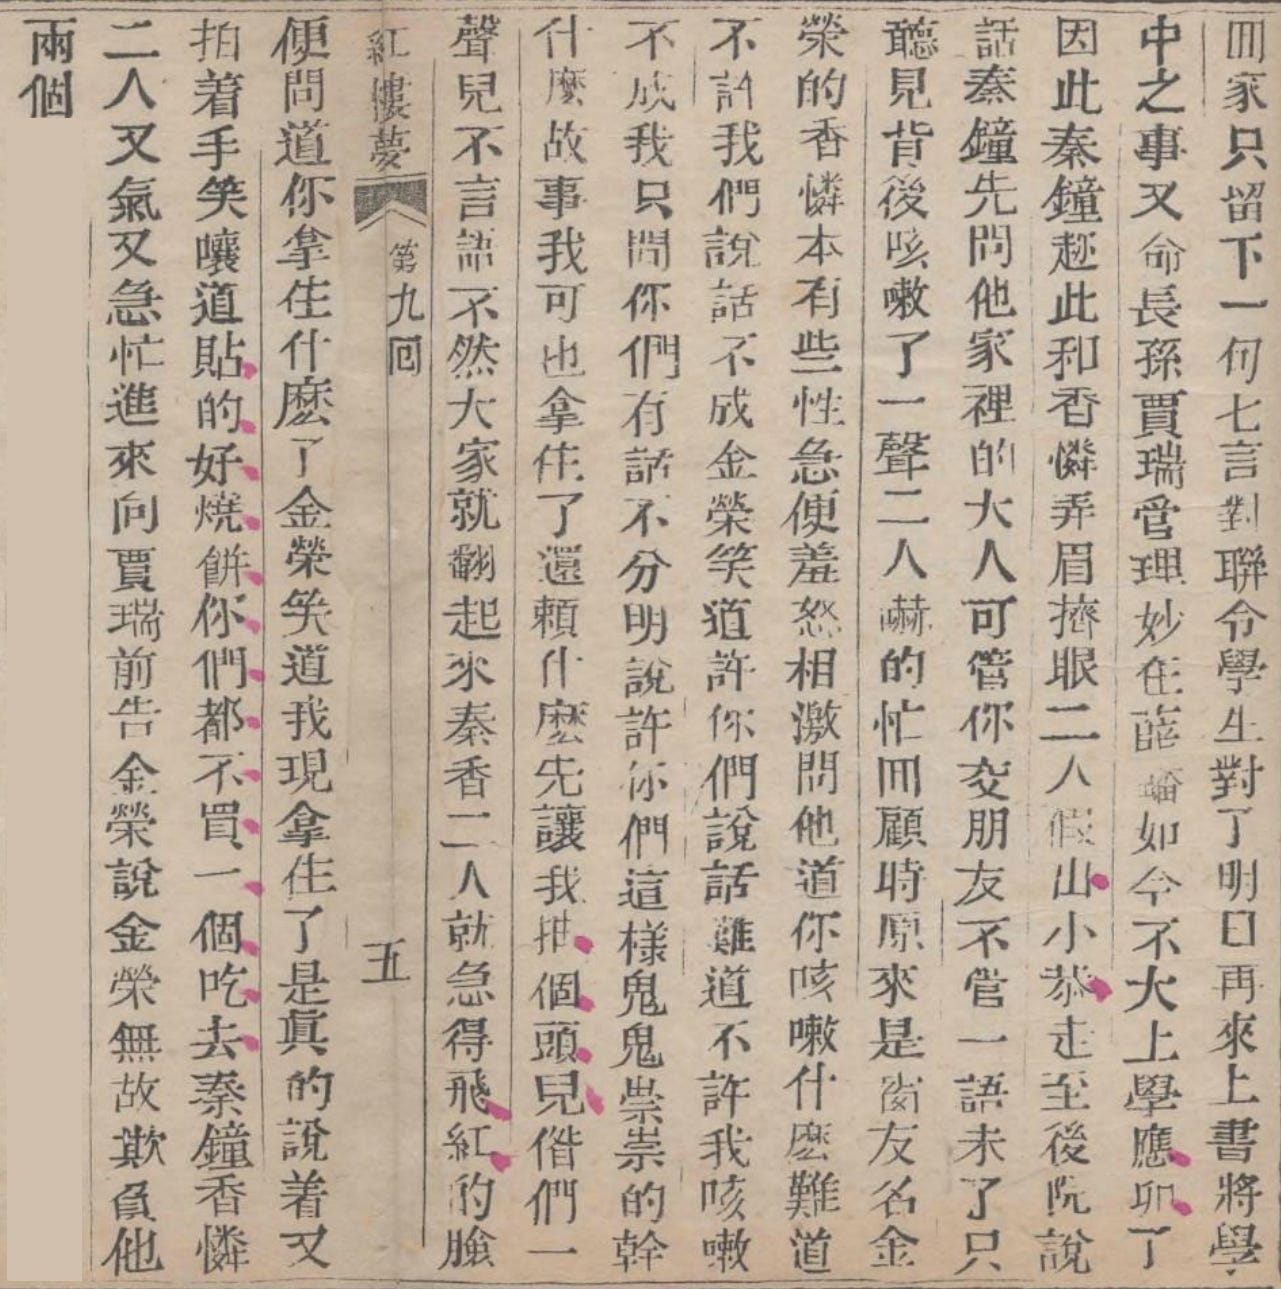 回家只留下一句七言對聯令學生對了明日再來上書將學
中之事又命長孫賈瑞管理妙在薛蟠如今不大上學應卯了
因此秦鐘趂此和香憐弄眉擠眼二人假山小恭走至後院說
話秦鐘先問他家裡的大人可管你交朋友不管一語未了只
聽見背後咳嗽了一聲二人嚇的忙回顧時原來是窗友名金
榮的香憐本有些性急便羞怒相激問他道你咳嗽什麼難道
不許我們說話不成金榮笑道許你們說話難道不許我咳嗽
不成我只問你們有話不分明說許你們這樣鬼鬼祟祟的幹
什麼故事我可也拿住了還賴什麼先讓我抽個頭兒偺們一
聲兒不言語不然大家就翻起來秦香二人就急得飛紅的臉
紅樓夢 第九回 五
便問道你拿住什麼了金榮笑道我現拿住了是真的說着又
拍着手笑嚷道貼的好燒餅你們都不買一個吃去秦鐘香憐
二人又氣又急忙進來向賈瑞前告金榮說金榮無故欺負他
兩個